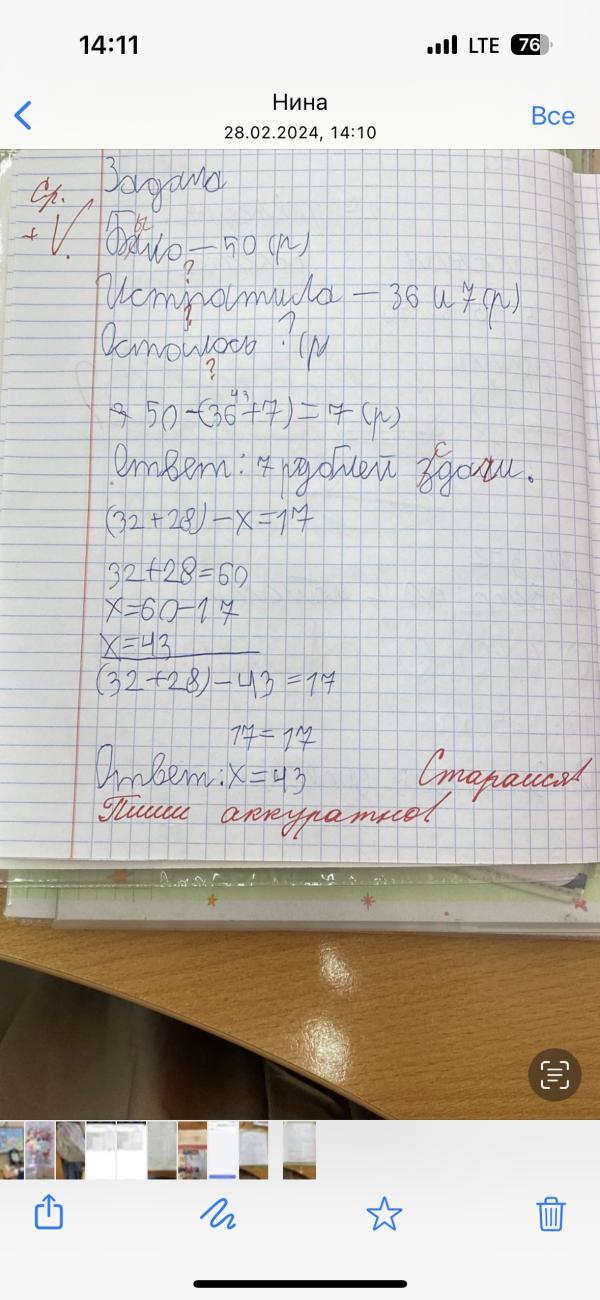 14:11
LTE 76
Нина
28.02.2024, 14:10
Все
Ср.
+ V.
Задача
Было — 50 (р)
?
Истратила — 36 и 7 (р)
?
Осталось ? (р
?
50 – (36+7) = 7 (р)
43
Ответ: 7 рублей сдачи.
(32+28) – х = 17
32+28=60
х=60–17
х=43
(32+28) – 43 = 17
17 = 17
Ответ: х = 43
Старайся!
Пиши аккуратно!